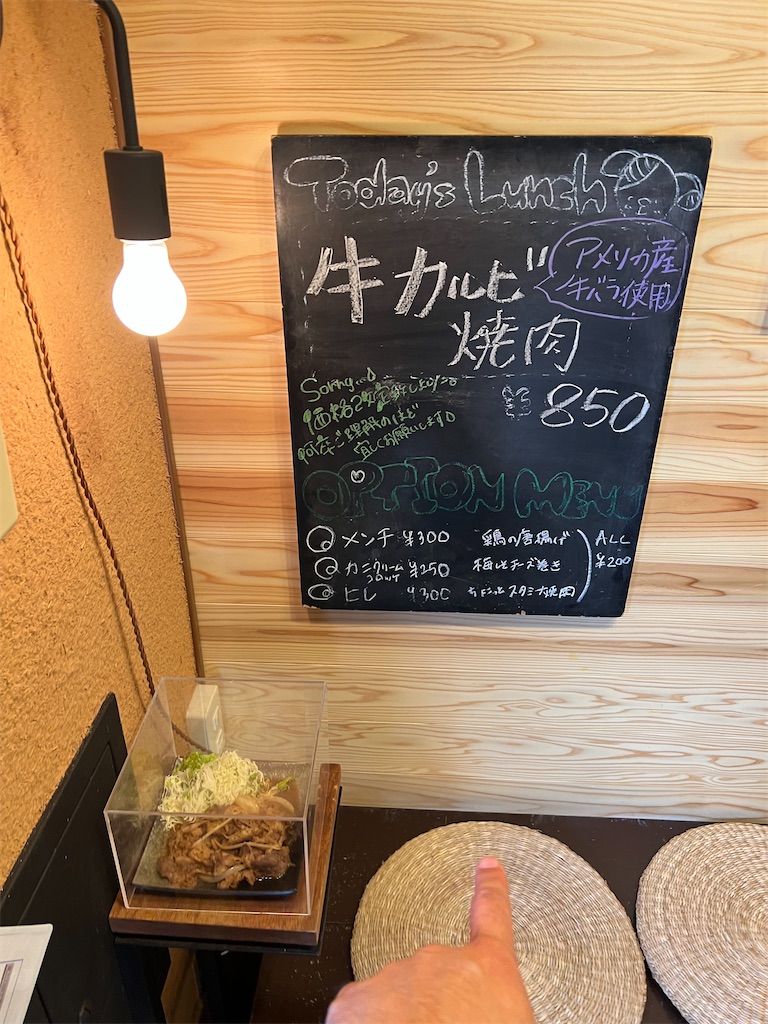 Today's Lunch
牛カルビ
焼肉
アメリカ産
牛バラ使用
¥850
Sorry...
価格改定致しました。
何卒ご理解のほど
宜しくお願いします。
OPTION MENU
メンチ ¥300
カニクリーム
コロッケ
¥250
ヒレ ¥300
鶏の唐揚げ
梅しそチーズ巻き
ALL
¥200